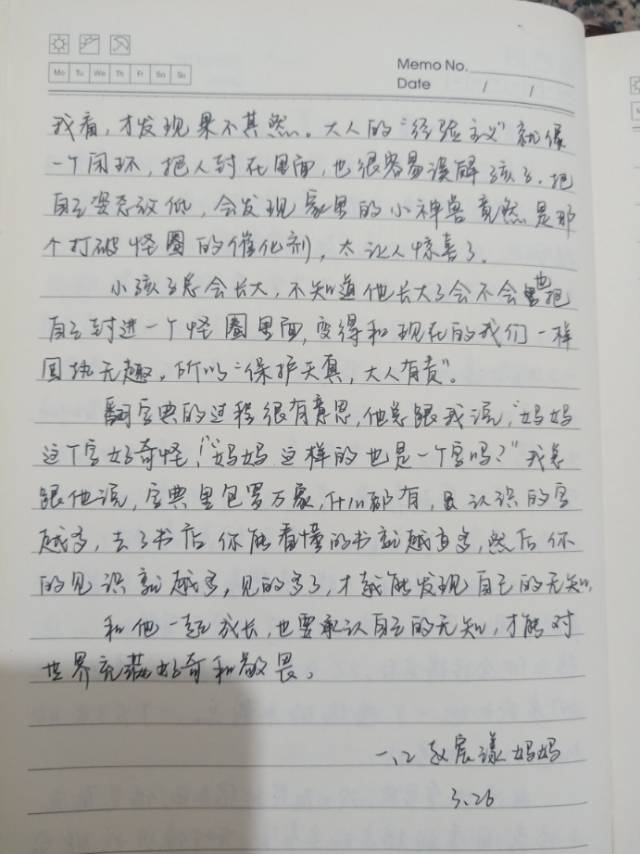 Mo Tu We Th Fr Sa Su
Memo No.
Date / /
我看，才发现果不其然。大人的“经验主义”就像
一个闭环，把人封在里面，也很容易误解孩子。把
自己姿态放低，会发现家里的小神兽竟然是那
个打破怪圈的催化剂，太让人惊喜了。
小孩子总会长大，不知道他长大了会不会也把
自己封进一个怪圈里面，变得和现在的我们一样
固执无趣，所以“保护天真，大人有责”。
翻字典的过程很有意思，他总跟我说，“妈妈
这个字好奇怪！”“妈妈这样的也是一个字吗？”我总
跟他说，字典里包罗万象，什么都有，认识的字
越多，去了书店你能看懂的书就越多，然后你
的见识就越多，见的多了，才越能发现自己的无知，
和他一起成长，也要承认自己的无知，才能对
世界充满好奇和敬畏。
一、2 宸漾妈妈
3.26